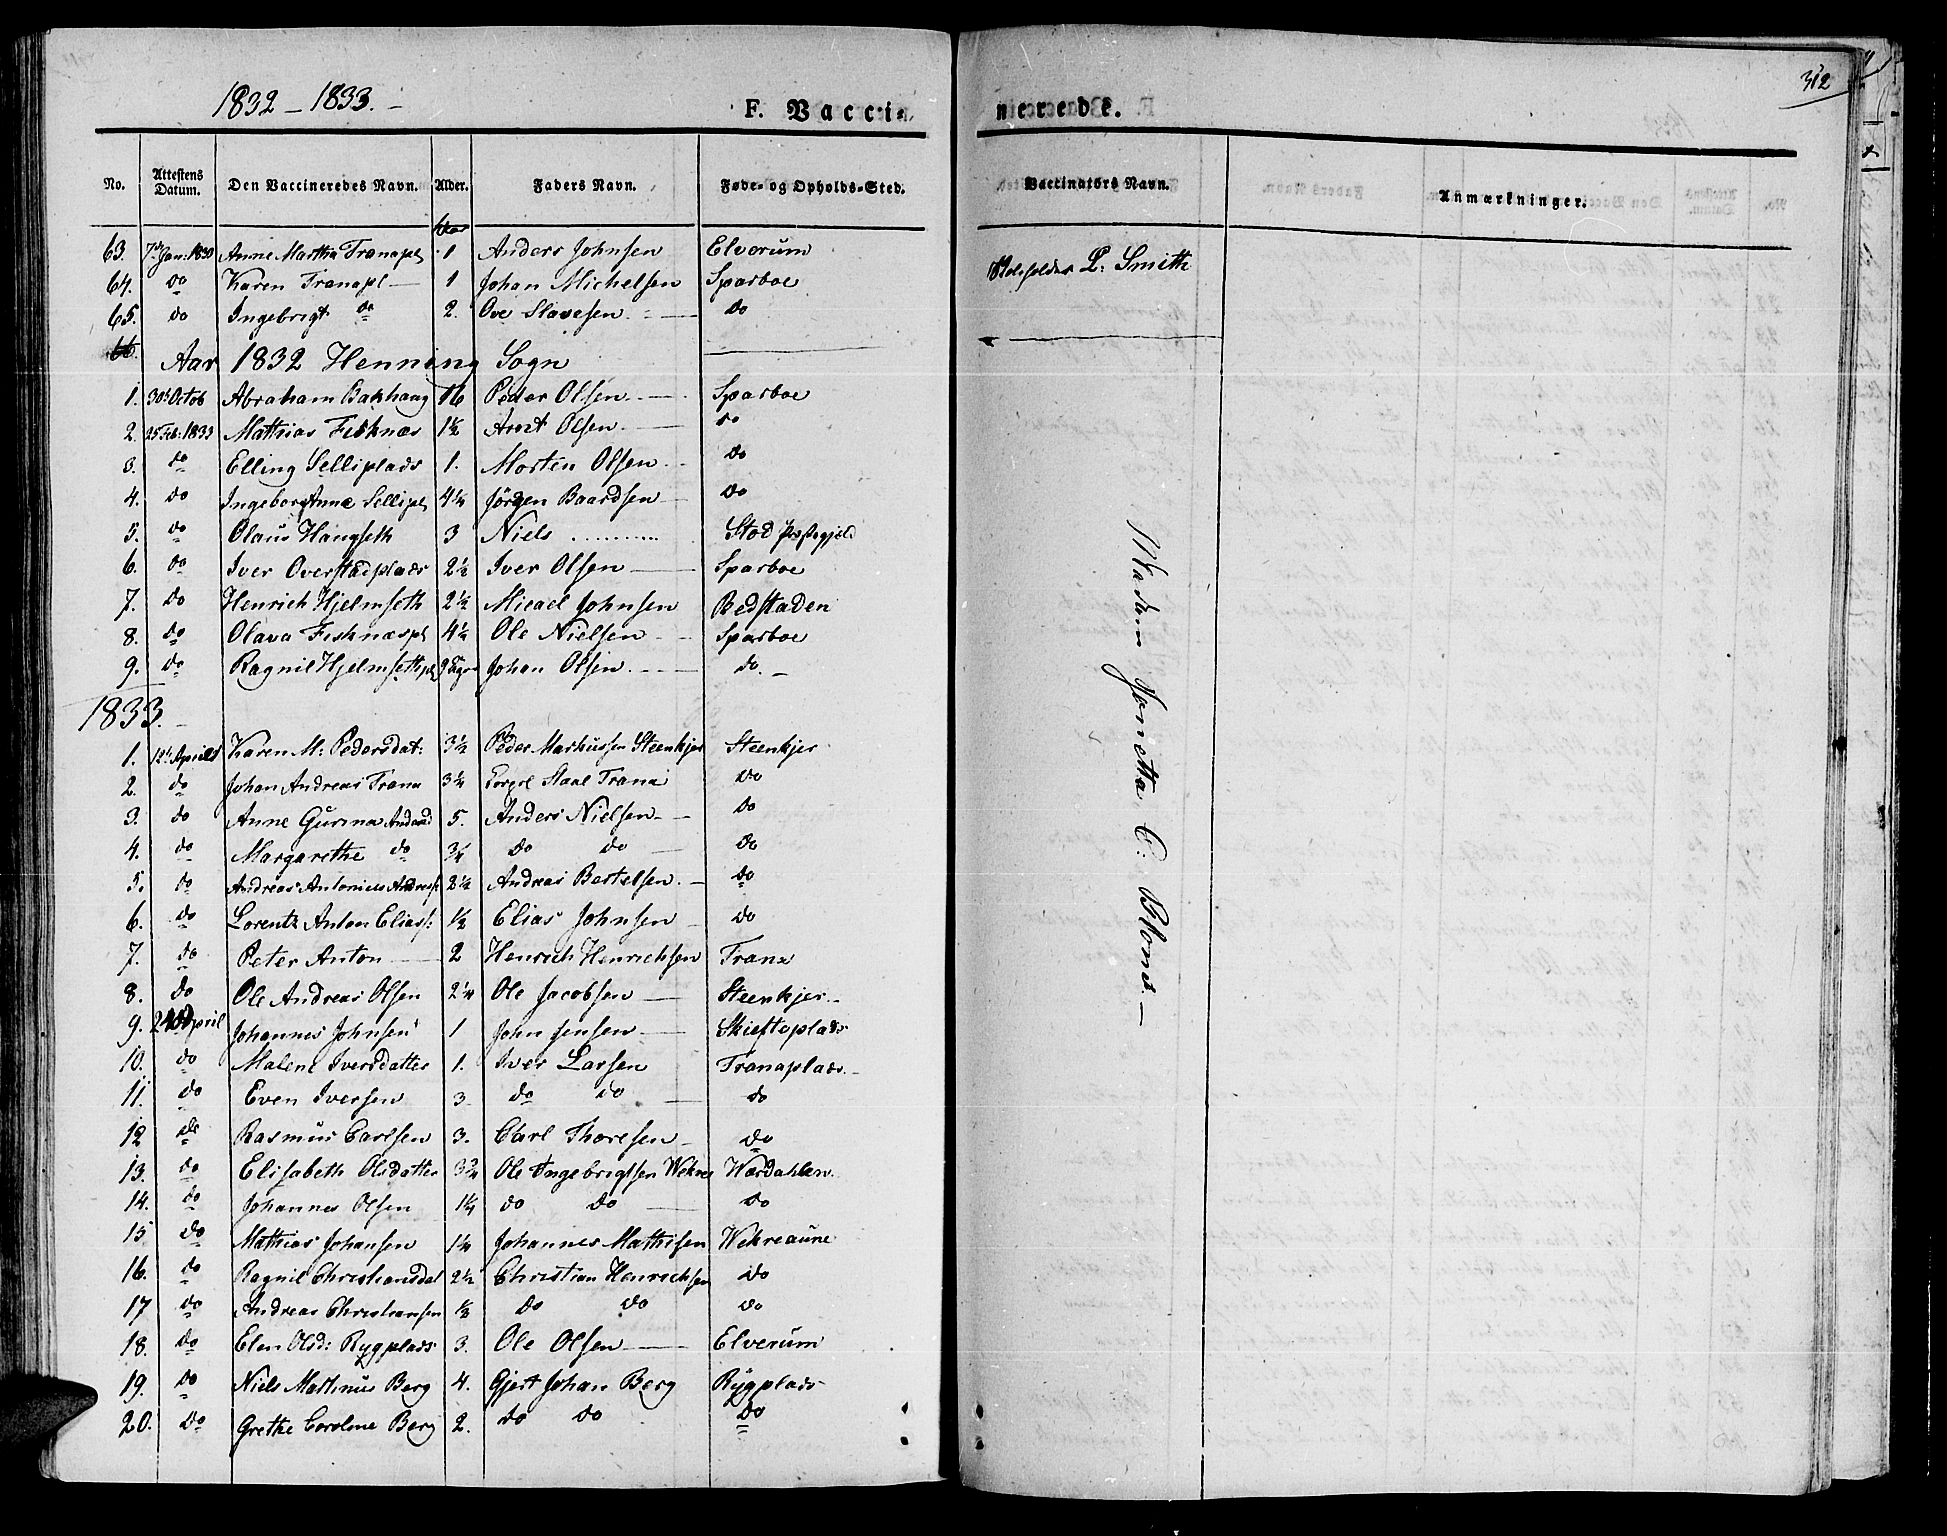 1832 – 1833. –
F. Vacci-
nerede.
312
No. Attestens Datum. Den Vaccineredes Navn. Alder. Faders Navn. Føde- og Opholds-Sted. Vaccinatørs Navn. Anmærkninger.
63. 7de Jan: 1830 Anne Martha Tranapl 1 Anders Johnsen Elverum L: Smith
64. do Karen Tranapl 1 Johan Michelsen Sparboe
65. do Ingebrigt do 2. Ove do
Aar 1832 Henning Sogn
1. 30te Octob Abraham Bakhaug 16 Peder Olsen Sparboe
2. 25 Feb: 1833 Mathias Fisknæs 1½ Arnt Olsen do
3. do Elling Selliplads 1. Morten Olsen do
4. do Ingeborg Anna Sellipl 4¼ Jørgen Baardsen do
5. do Olaus Haugseth 3 Niels .......... Stod
6. do Iver Overstadplads 2½ Iver Olsen Sparboe
7. do Henrich Hjelmseth 2½ Micael Johnsen Bedstaden
8. do Olava Fisknæspl 4½ Ole Nielsen Sparboe
9. do Ragnil Hjelmsethpl 9 Johan Olsen do. –
1833.
1. 12te Aprill Karen M: Pedersdat: 3½ Peder Markussen Steenkjer Steenkjer
2. do Johan Andreas Trana 3¼ Staal Trana do
3. do Anne Gurina 5. Anders Nielsen do
4. do Margarethe do ¾ do do do
5. do Andreas Antonius 2½ Andreas Bertelsen. do
6. do Lorentz Anton Eliass: ½ Elias Johnsen do
7. do Peter Anton 2 Henrich Henrichsen Trana
8. do Ole Andreas Olsen 2¼ Ole Jacobsen Steenkjer
9. April Johannes Johnsen 1 John Jensen
10. do Malene Iversdatter 1. Iver Larsen Tranaplads
11. do Even Iversen 3 do do do
12 do Rasmus Carlsen 3. Carl Thoresen do
13. do Elisabeth Olsdatter 3¾ Ole Ingebrigtsen Wærdahlen
14. do Johannes Olsen 1¼ do do do
15 do Mathias Johansen 1¼ Johannes Mathisen Wekreaune
16. do Ragnil Christiansdat 2½ Christian Henrichsen do
17 do Andreas Christiansen ½ do do do
18. do Elen Olsd: Rygplads 3. Ole Olsen Elverum
19. do Niels Martinus Berg 4. Gjert Johan Berg Rygplads
20. do Grethe Caroline Berg 2. do do do
Madam Jonetta C: Blons. –